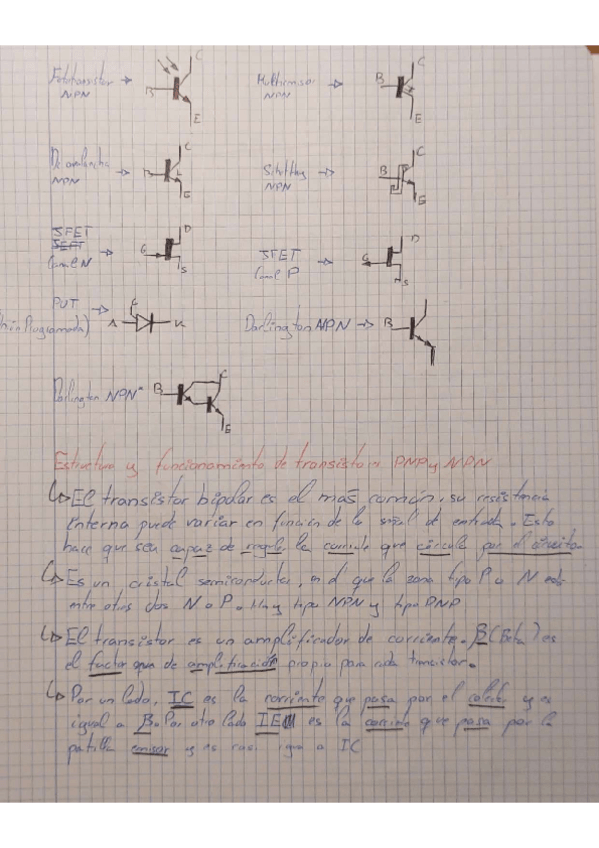 Fototransistor → C
NPN B E
Multiemisor → C
NPN B E
De avalancha → C
NPN B E
Schottky → C
NPN B E
JFET D
Canal N → G S
JFET → D
Canal P G S
PUT →
(Unión Programada) A K
Darlington NPN → B
Darlington NPN B C E
Estructura y funcionamiento de transistores PNP y NPN
↳ El transistor bipolar es el más común, su resistencia
interna puede variar en función de la señal de entrada. Esto
hace que sea capaz de regular la corriente que circula por el circuito.
↳ Es un cristal semiconductor, en el que la zona tipo P o N está
entre otras dos N o P. Hay tipo NPN y tipo PNP
↳ El transistor es un amplificador de corriente. β (Beta) es
el factor de amplificación propio para cada transistor.
↳ Por un lado, IC es la corriente que pasa por el colector y es
igual a β. Por otro lado IE es la corriente que pasa por la
patilla emisor y es casi igua a IC